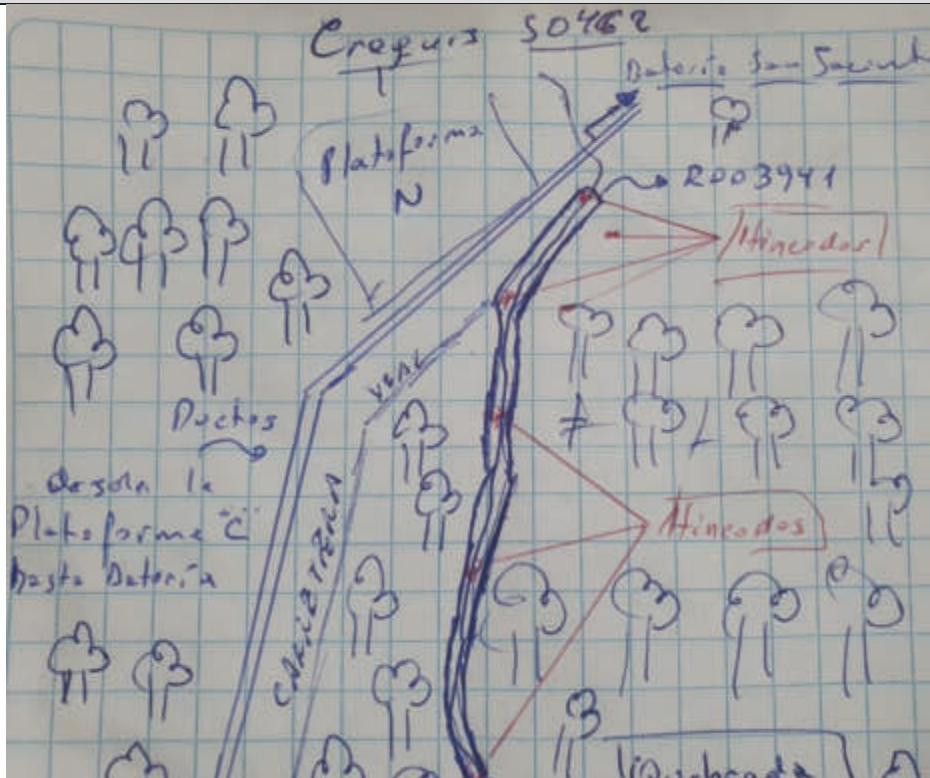 Croquis S0462
Batería San Jacinto
Plataforma
N
2003941
Hincados
VEAL
Ductos
desde la
Plataforma "C"
hasta Batería
CARRETERA
Hincados
Quebrada